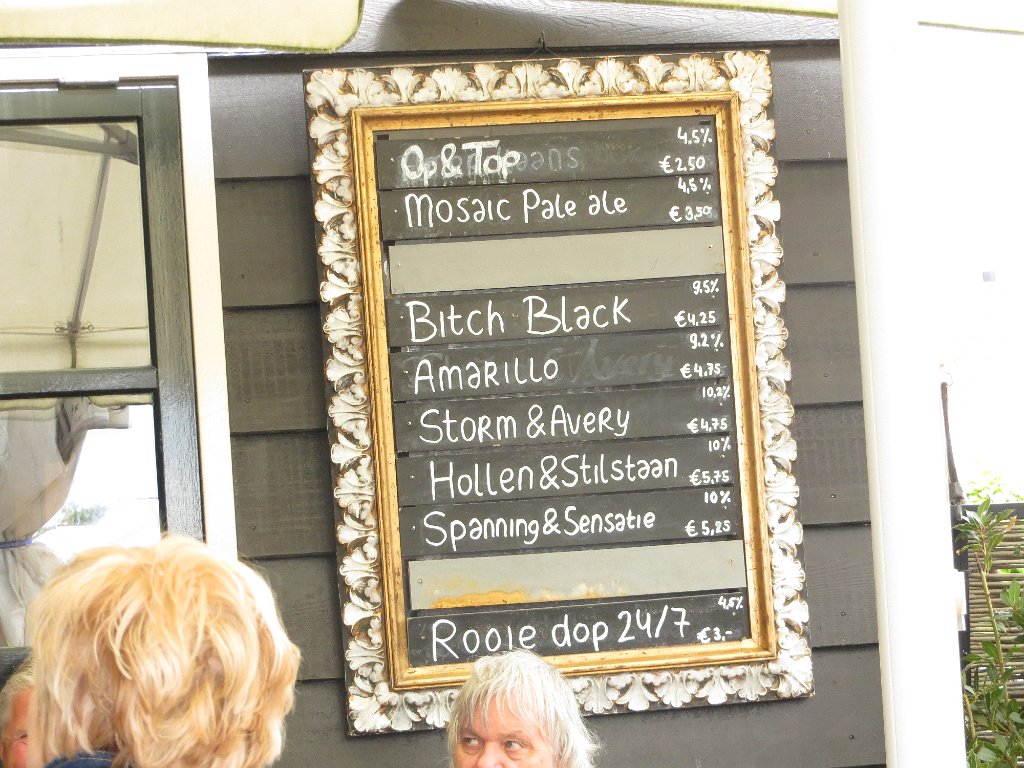 Op&Top 4,5% €2,50
Mosaic Pale ale 4,5% €3,50
Bitch Black 9,5% €4,25
Amarillo 9.2% €4,75
Storm & Avery 10,2% €4,75
Hollen & Stilstaan 10% €5,75
Spanning & Sensatie 10% €5,25
Rooie dop 24/7 4,6% €3,-